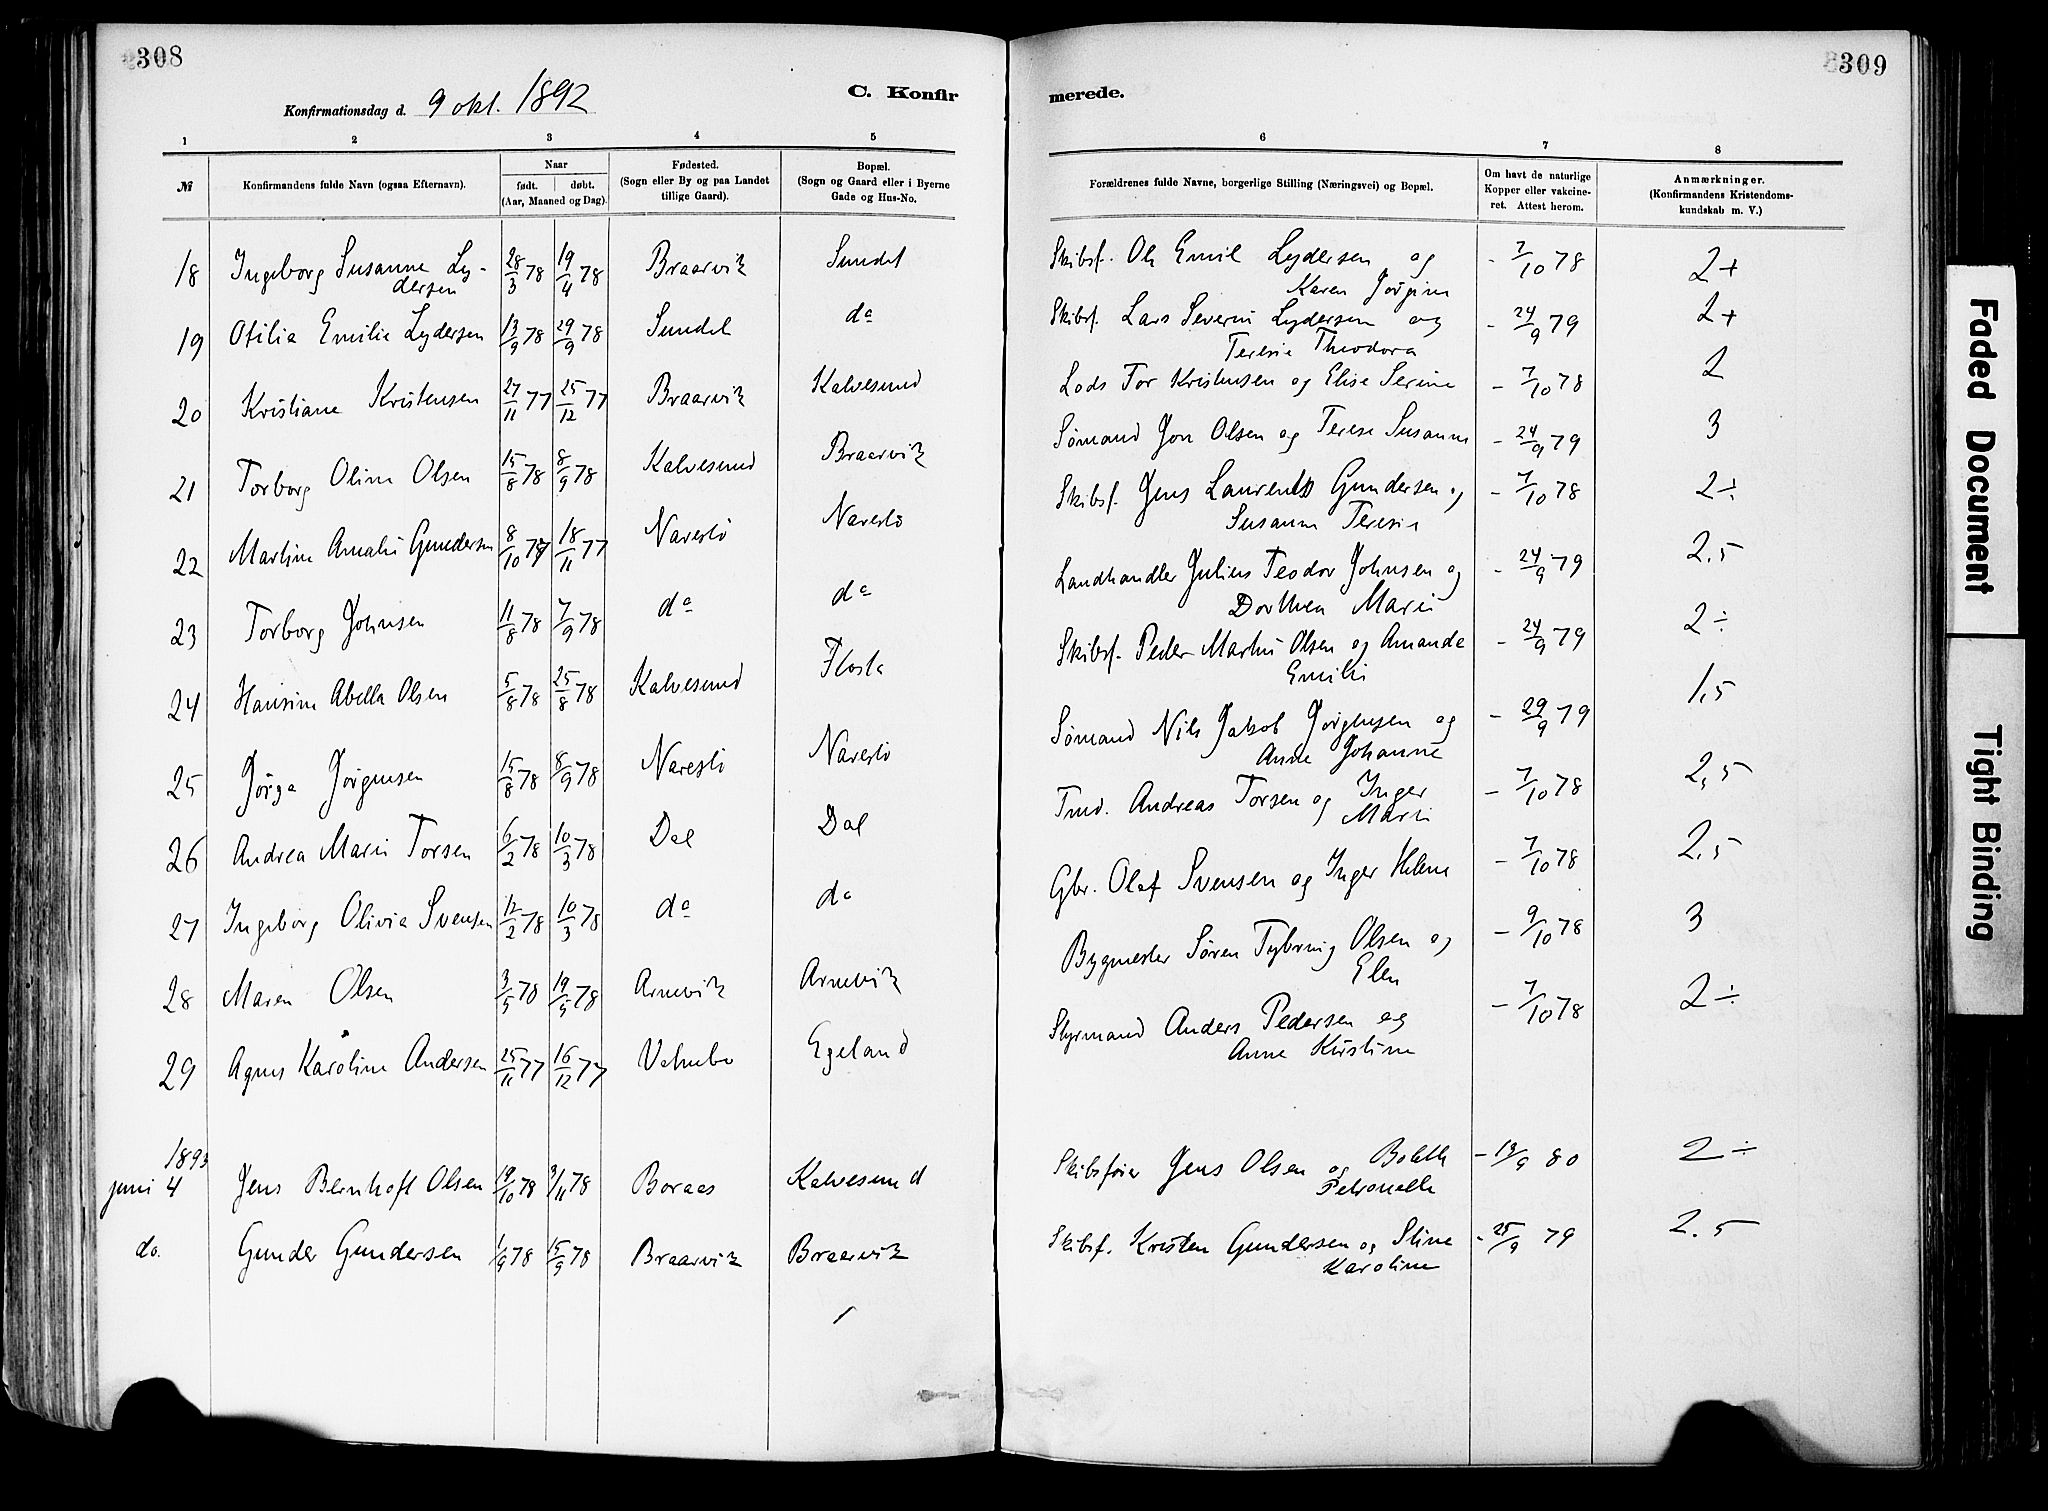 308
Konfirmationsdag d. 9 okt. 1892
C. Konfir
1 2 3 4 5
№ Konfirmandens fulde Navn (ogsaa Efternavn). Naar født. døbt. (Aar, Maaned og Dag). Fødested. (Sogn eller By og paa Landet tillige Gaard). Bopæl. (Sogn og Gaard eller i Byerne Gade og Hus-No.
18 Ingeborg Susanne Ly- 28/3 78 19/4 78 Braarvik Sundet
dersen
19 Otilia Emilie Lydersen 13/9 78 29/9 78 Sundet do
20 Kristiane Kristensen 27/11 77 25/12 77 Braarvik Kalvesund
21 Torborg Oline Olsen 15/8 78 8/9 78 Kalvesund Braarvik
22 Martine Amalie Gundersen 8/10 77 18/11 77 Narestø Narestø
23 Torborg Johnsen 11/8 78 7/9 78 do do
24 Hansine Abella Olsen 5/8 78 25/8 78 Kalvesund Flosta
25 Jørga Jørgensen 15/8 78 8/9 78 Narestø Narestø
26 Andrea Marie Torsen 6/2 78 10/3 78 Dal Dal
27 Ingeborg Olivia Svensen 12/2 78 10/3 78 do do
28 Maren Olsen 3/5 78 19/5 78 Arnevik Arnevik
29 Agnes Karoline Andersen 25/11 77 16/12 77 Egeland
1893
juni 4 Jens Bernhoft Olsen 19/10 78 3/11 78 Boraas Kalvesund
do. Gunder Gundersen 1/9 78 15/9 78 Braarvik Braarvik
309
merede.
6 7 8
Forældrenes fulde Navne, borgerlige Stilling (Næringsvei) og Bopæl. Om havt de naturlige Kopper eller vakcineret. Attest herom. Anmærkninger. (Konfirmandens Kristendomskundskab m. V.)
Skibsf. Ole Emil Lydersen og - 7/10 78 2+
Karen Jørgine
Skibsf. Lars Severin Lydersen og - 24/9 79 2+
Teresie Theodora
Lods Tor Kristensen og Elise Serine - 7/10 78 2
Sømand Jon Olsen og Terese Susanne - 24/9 79 3
Skibsf. Jens Laurents Gundersen og - 7/10 78 2÷
Susanne Teresie
Landhandler Julius Teodor Johnsen og - 24/9 79 2.5
Dorthea Marie
Skibsf. Peder Martin Olsen og Amanda - 24/9 79 2÷
Emilie
Sømand Nils Jakob Jørgensen og - 29/9 79 1,5
Anne Johanne
Tmd. Andreas Torsen og Inger - 7/10 78 2,5
Marie
Gbr. Olaf Svensen og Inger Helene - 7/10 78 2,5
Bygmester Søren Tybring Olsen og - 9/10 78 3
Elen
Styrmand Anders Pedersen og - 7/10 78 2÷
Anne Kirstine
Skibsfører Jens Olsen og Bolette - 19/9 80 2÷
Petronelle
Skibsf. Kristen Gundersen og Stine - 25/9 79 2.5
Karoline
Faded Document
Tight Binding